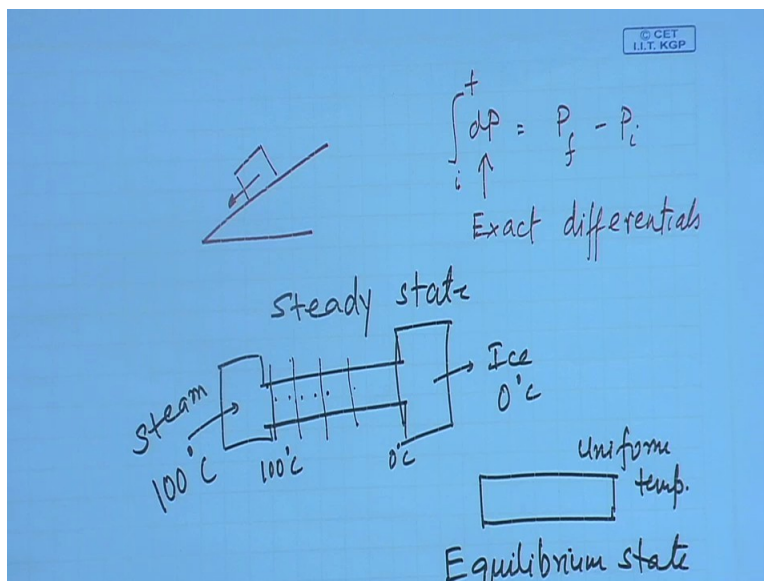 © CET
I.I.T. KGP
∫ᵢᶠ dP = P_f - P_i
↑
Exact differentials
Steady state
Steam
100°C
100°C
0°C
Ice
0°C
Uniform
temp.
Equilibrium state